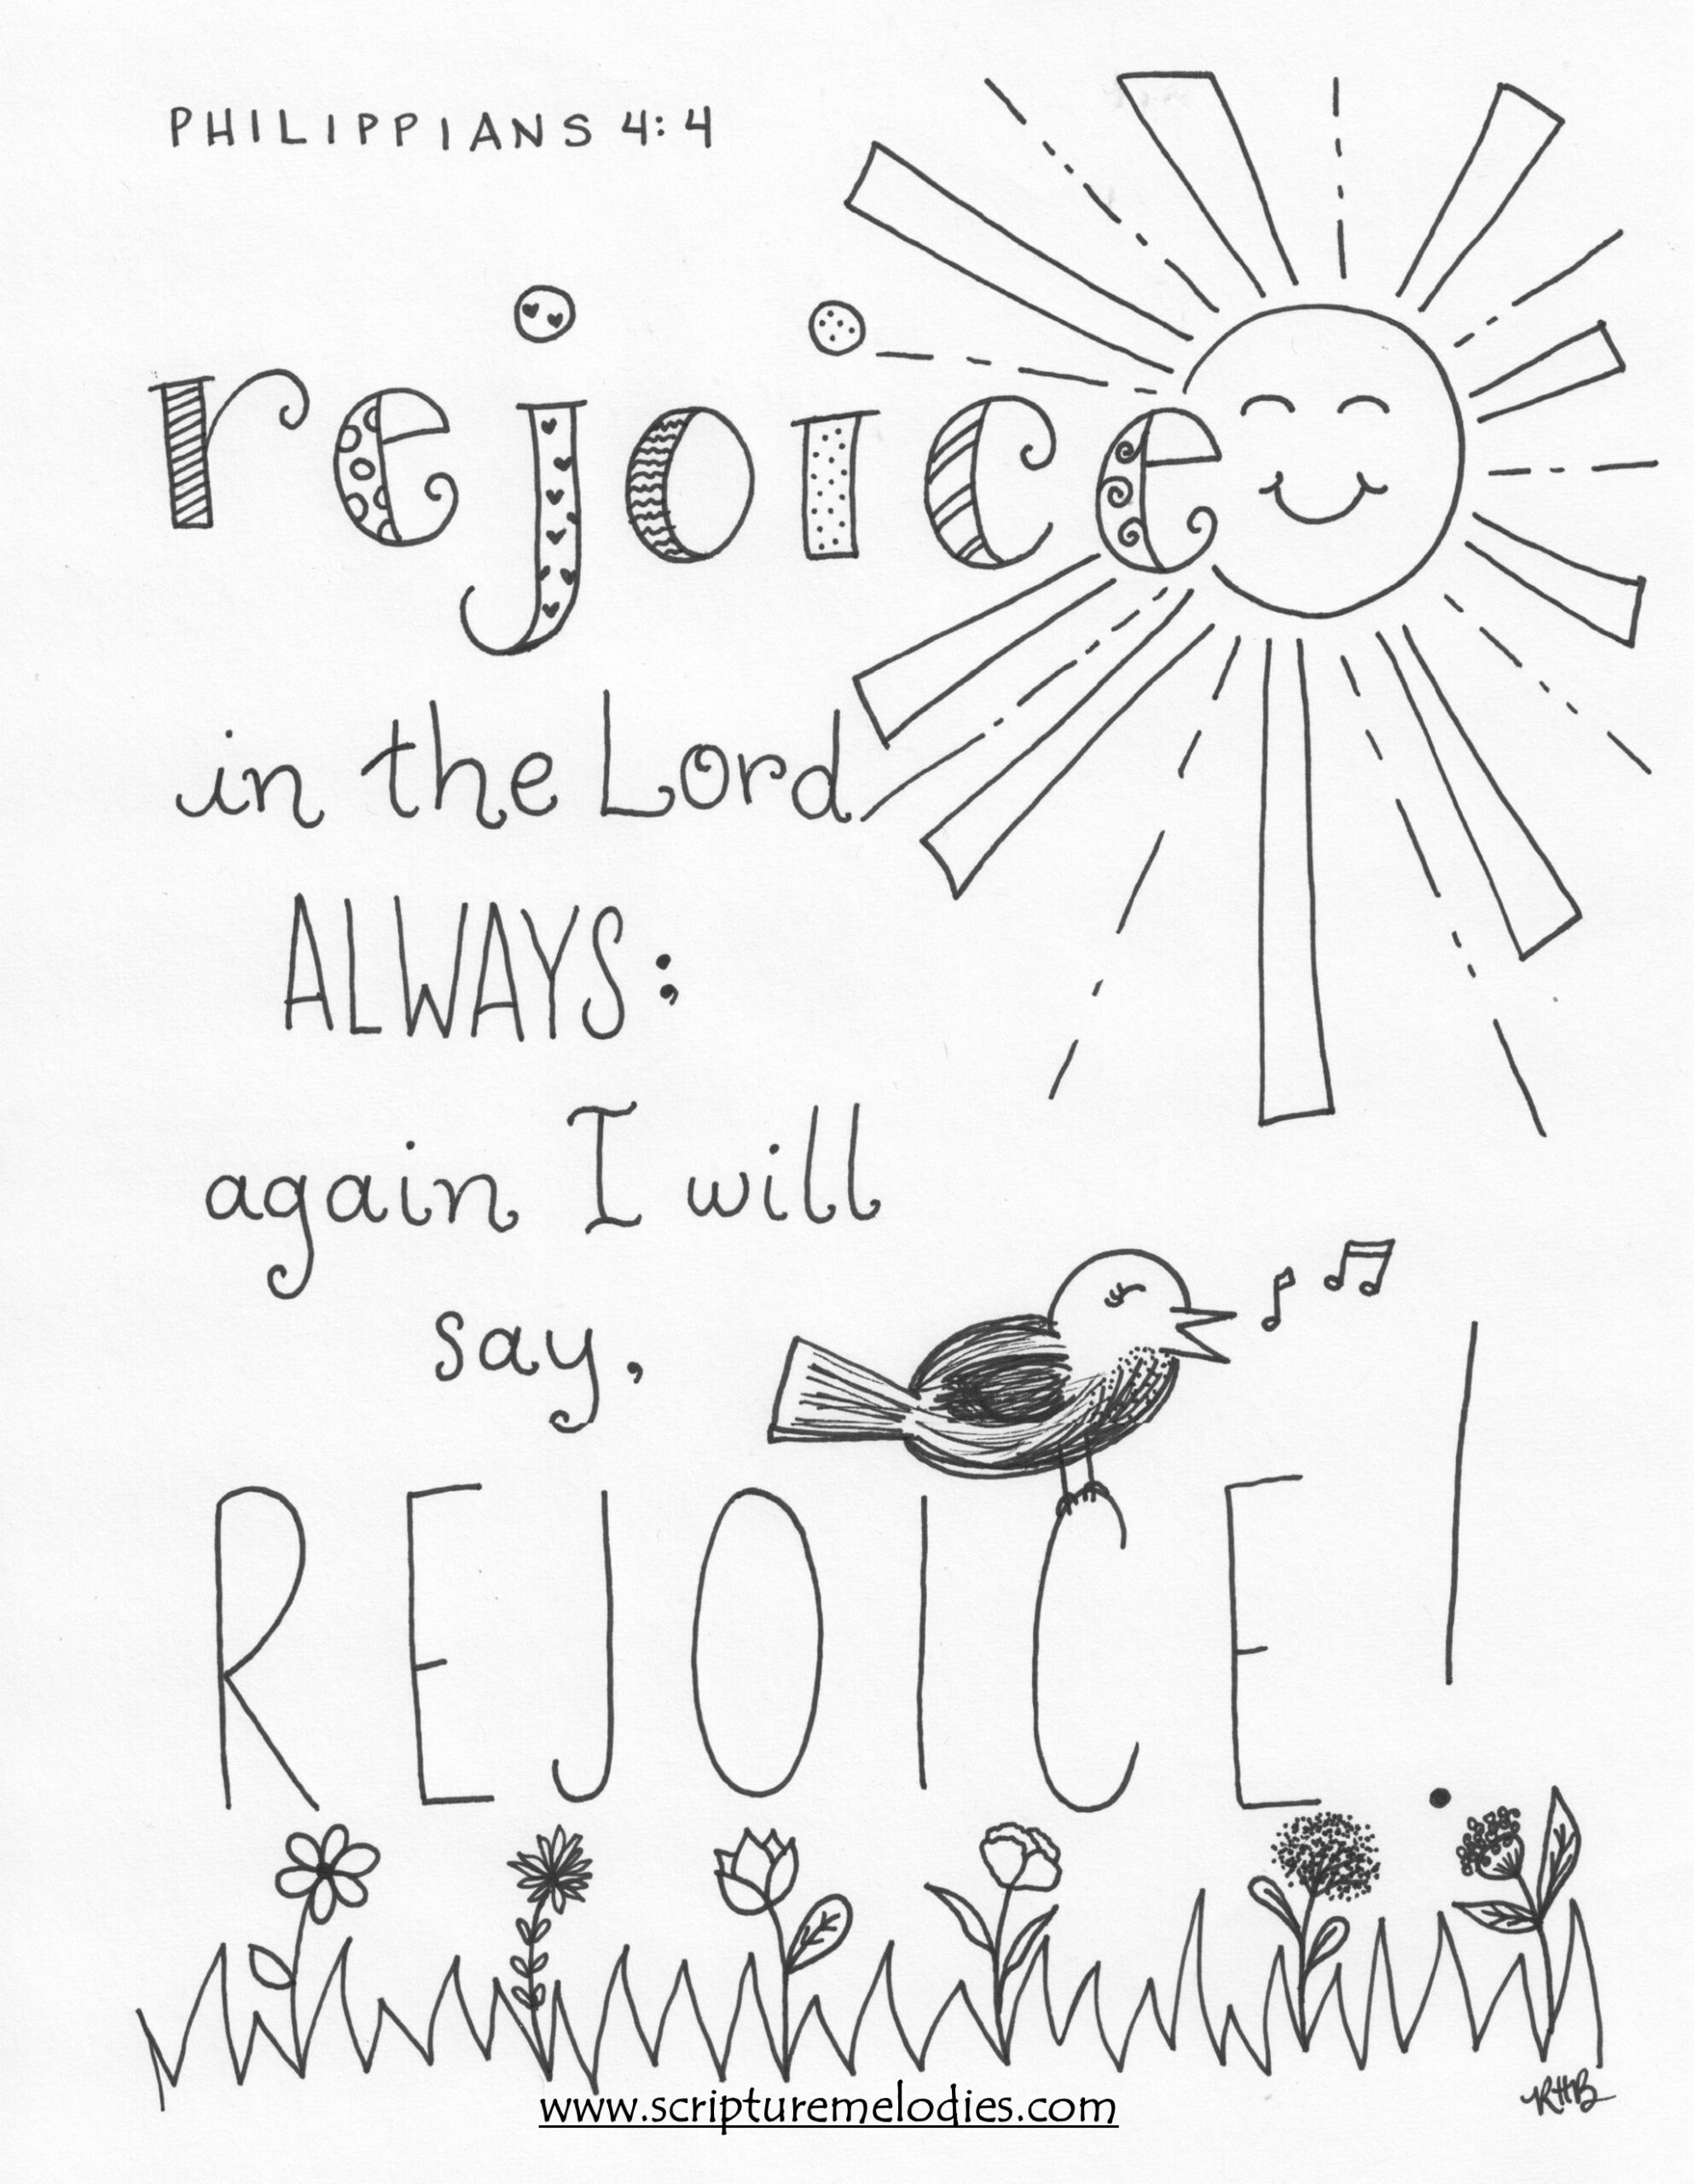 PHILIPPIANS 4:4
rejoice
in the Lord
ALWAYS;
again I will
say,
REJOICE!
www.scripturemelodies.com
RHB